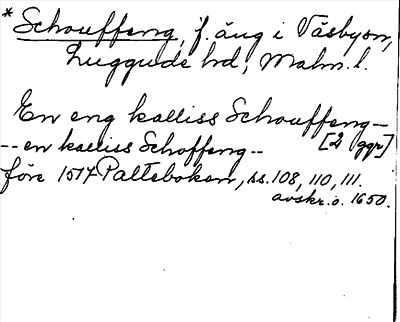 * Schouffeng, f. äng i Väsbysn,
Luggude hd, Malm. l.
En eng kalliss Schouffeng --
[2 ggr]
-- en kaeliss Schoffeng --
före 1514 Palteboken, ss. 108, 110, 111.
avskr. o. 1650.